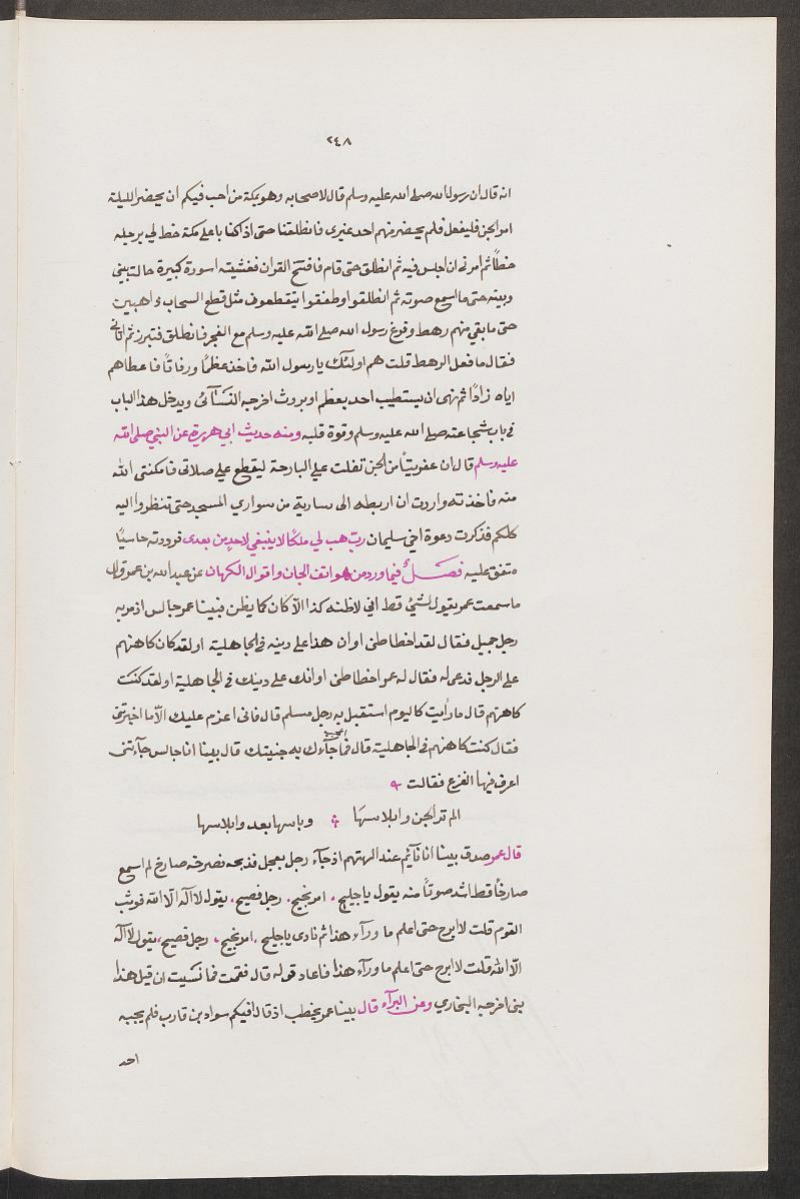 ٢٤٨
انه قال ان رسول الله صلى الله عليه وسلم قال لاصحابه وهو بمكة من احب فيكم ان يحضر الليلة
امر الجن فليفعل فلم يحضر منهم احد غيرى فانطلقنا حتى اذا كنا باعلى مكة خط لي برجله
خطاً ثم امرنى ان اجلس فيه ثم انطلق حتى قام فافتتح القران فغشيته اسورة كبيرة حالت بيني
وبينه حتى ما اسمع صوته ثم انطلقوا وطفقوا يتقطعوف مثل قطع السحاب ذاهبين
حتى ما بقي منهم رهط وفرغ رسول الله صلى الله عليه وسلم مع الفجر فانطلق فتبرز ثم اتانى
فقال ما فعل الرهط قلت هم اولئك يا رسول الله فاخذ عظمًا ورفاتًا فاعطاهم
اياه زادًا ثم نهى ان يستطيب احد بعظم او بروث اخرجه النسآئى ويدخل هذا الباب
في باب شجاعته صلى الله عليه وسلم وقوة قلبه ومنه حديث ابي هريرة عن النبي صلى الله
عليه وسلم قال ان عفريتًا من الجن تفلت علي البارحة ليقطع علي صلاتى فامكننى الله
منه فاخذته واردت ان اربطه الى سارية من سواري المسجد حتى تنظروا اليه
كلكم فذكرت دعوة اخي سليمان رب هب لي ملكًا لا ينبغي لاحد من بعدى فرددته خاسئًا
متفق عليه فصل فيما ورد من هواتف الجان واقوال الكهان عن عبد الله بن عمر قال
ما سمعت عمر يقول لشئ قط اني لاظنه كذا الا كان كما يظن فبينا عمر جالس اذ مر به
رجل جميل فقال لقد اخطا ظنى او ان هذا على دينه في الجاهلية او لقد كان كاهنهم
علي الرجل فدعى له فقال له عمر اخطا ظنى او انك على دينك في الجاهلية او لقد كنت
كاهنهم قال ما رأيت كاليوم استقبل به رجل مسلم قال فانى اعزم عليك الّا ما اخبرتنى
فقال كنت كاهنهم في الجاهلية قال فما جآءك به جنيتك قال بينا انا جالس جآءتنى
اعرف فيها الفزع فقالت
الم تر الجن وابلاسها وياسها بعد وابلاسها
قال عمر صدق بينا انا نآئم عند الهتهم اذ جآء رجل بعجل فذبحه فصرخ صارخ لم اسمع
صارخًا قط اشد صوتًا منه يقول يا جليح، امر نجيح، رجل فصيح، يقول لا اله الا الله فوثب
القوم قلت لا ابرح حتى اعلم ما ورآء هذا ثم نادى يا جليح، امر نجيح، رجل فصيح، يقول لا اله
الا الله قلت لا ابرح حتى اعلم ما ورآء هذا فاعاد قوله قال فقمت فما نشبت ان قيل هذا
نبى اخرجه البخاري وعن البرآء قال بينا عمر يخطب اذ قال افيكم سواد بن قارب فلم يجبه
احد